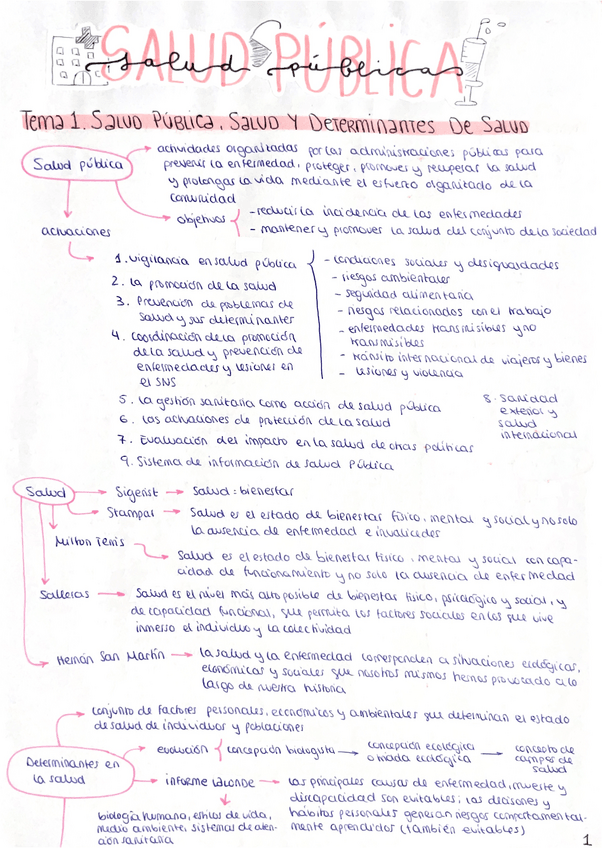 SALUD PÚBLICA
salud públicas
Tema 1. SALUD PÚBLICA, SALUD Y DETERMINANTES DE SALUD
Salud pública
actividades organizadas por las administraciones públicas para
prevenir la enfermedad, proteger, promover y recuperar la salud
y prolongar la vida mediante el esfuerzo organizado de la
comunidad
objetivos
- reducir la incidencia de las enfermedades
- mantener y promover la salud del conjunto de la sociedad
actuaciones
1. vigilancia en salud pública
- condiciones sociales y desigualdades
- riesgos ambientales
- seguridad alimentaria
- riesgos relacionados con el trabajo
- enfermedades transmisibles y no
transmisibles
- tránsito internacional de viajeros y bienes
- lesiones y violencia
2. la promoción de la salud
3. Prevención de problemas de
salud y sus determinantes
4. Coordinación de la promoción
de la salud y prevención de
enfermedades y lesiones en
el SNS
5. la gestión sanitaria como acción de salud pública
6. las actuaciones de protección de la salud
7. Evaluación del impacto en la salud de otras políticas
8. Sanidad
exterior y
salud
internacional
9. Sistema de información de salud pública
Salud
Sigerist
Salud: bienestar
Stampar
Salud es el estado de bienestar físico, mental y social y no solo
la ausencia de enfermedad e invalideces
Milton Terris
Salud es el estado de bienestar físico, mental y social con capa-
cidad de funcionamiento y no solo la ausencia de enfermedad
Salleras
Salud es el nivel más alto posible de bienestar físico, psicológico y social, y
de capacidad funcional, que permita los factores sociales en los que vive
inmerso el individuo y la colectividad
Hernán San Martín
la salud y la enfermedad corresponden a situaciones ecológicas,
económicas y sociales que nosotros mismos hemos provocado a lo
largo de nuestra historia
Determinantes en
la salud
conjunto de factores personales, económicos y ambientales que determinan el estado
de salud de individuos y poblaciones
evolución
concepción biologista
concepción ecológica
o triada ecológica
concepto de
campos de
salud
informe lalonde
las principales causas de enfermedad, muerte y
discapacidad son evitables; las decisiones y
hábitos personales generan riesgos comportamental-
mente aprendidos (también evitables)
biología humana, estilos de vida,
medio ambiente, sistemas de aten-
ción sanitaria
1